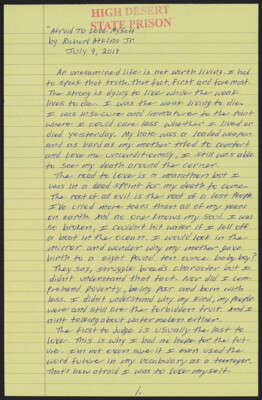 HIGH DESERT
STATE PRISON
"Afraid To Love Myself"
by Richard Atkins Jr.
JULY 9, 2019
An unexamined life is not worth living. I had
to speak that truth, that fact, first and foremost.
The strong is dying to live while the weak
lives to die. I was the weak living to die.
I was insecure and immature to the point
where I could care less whether I lived or
died yesterday. My hate was a loaded weapon
and as hard as my mother tried to comfort
and love me unconditionally, I still was able
to see my death around the corner.
The road to love is a marathon but I
was in a dead sprint for my death to come.
The root of all evil is the root of a lost people.
I've cried more tears than all of my years
on earth. And no one knows my soul. I was
so broken, I couldn't hit water if I fell off
a boat in the ocean. I would look in the
mirror and wonder why my mother gave
birth to a eight pound ten ounce baby boy?
They say, struggle breeds character but I
didn't understand that fact. Nor did I com-
prehend poverty, being poor and born with
less. I didn't understand why my kind, my people
were and still are the forbidden fruit. And I
aint talking about watermelons either.
The first to judge is usually the last to
love. This is why I had no hope for the fut-
ure. I'm not even sure if I even used the
word future in my vocabulary as a teenager.
That's how afraid I was to love myself.
1.